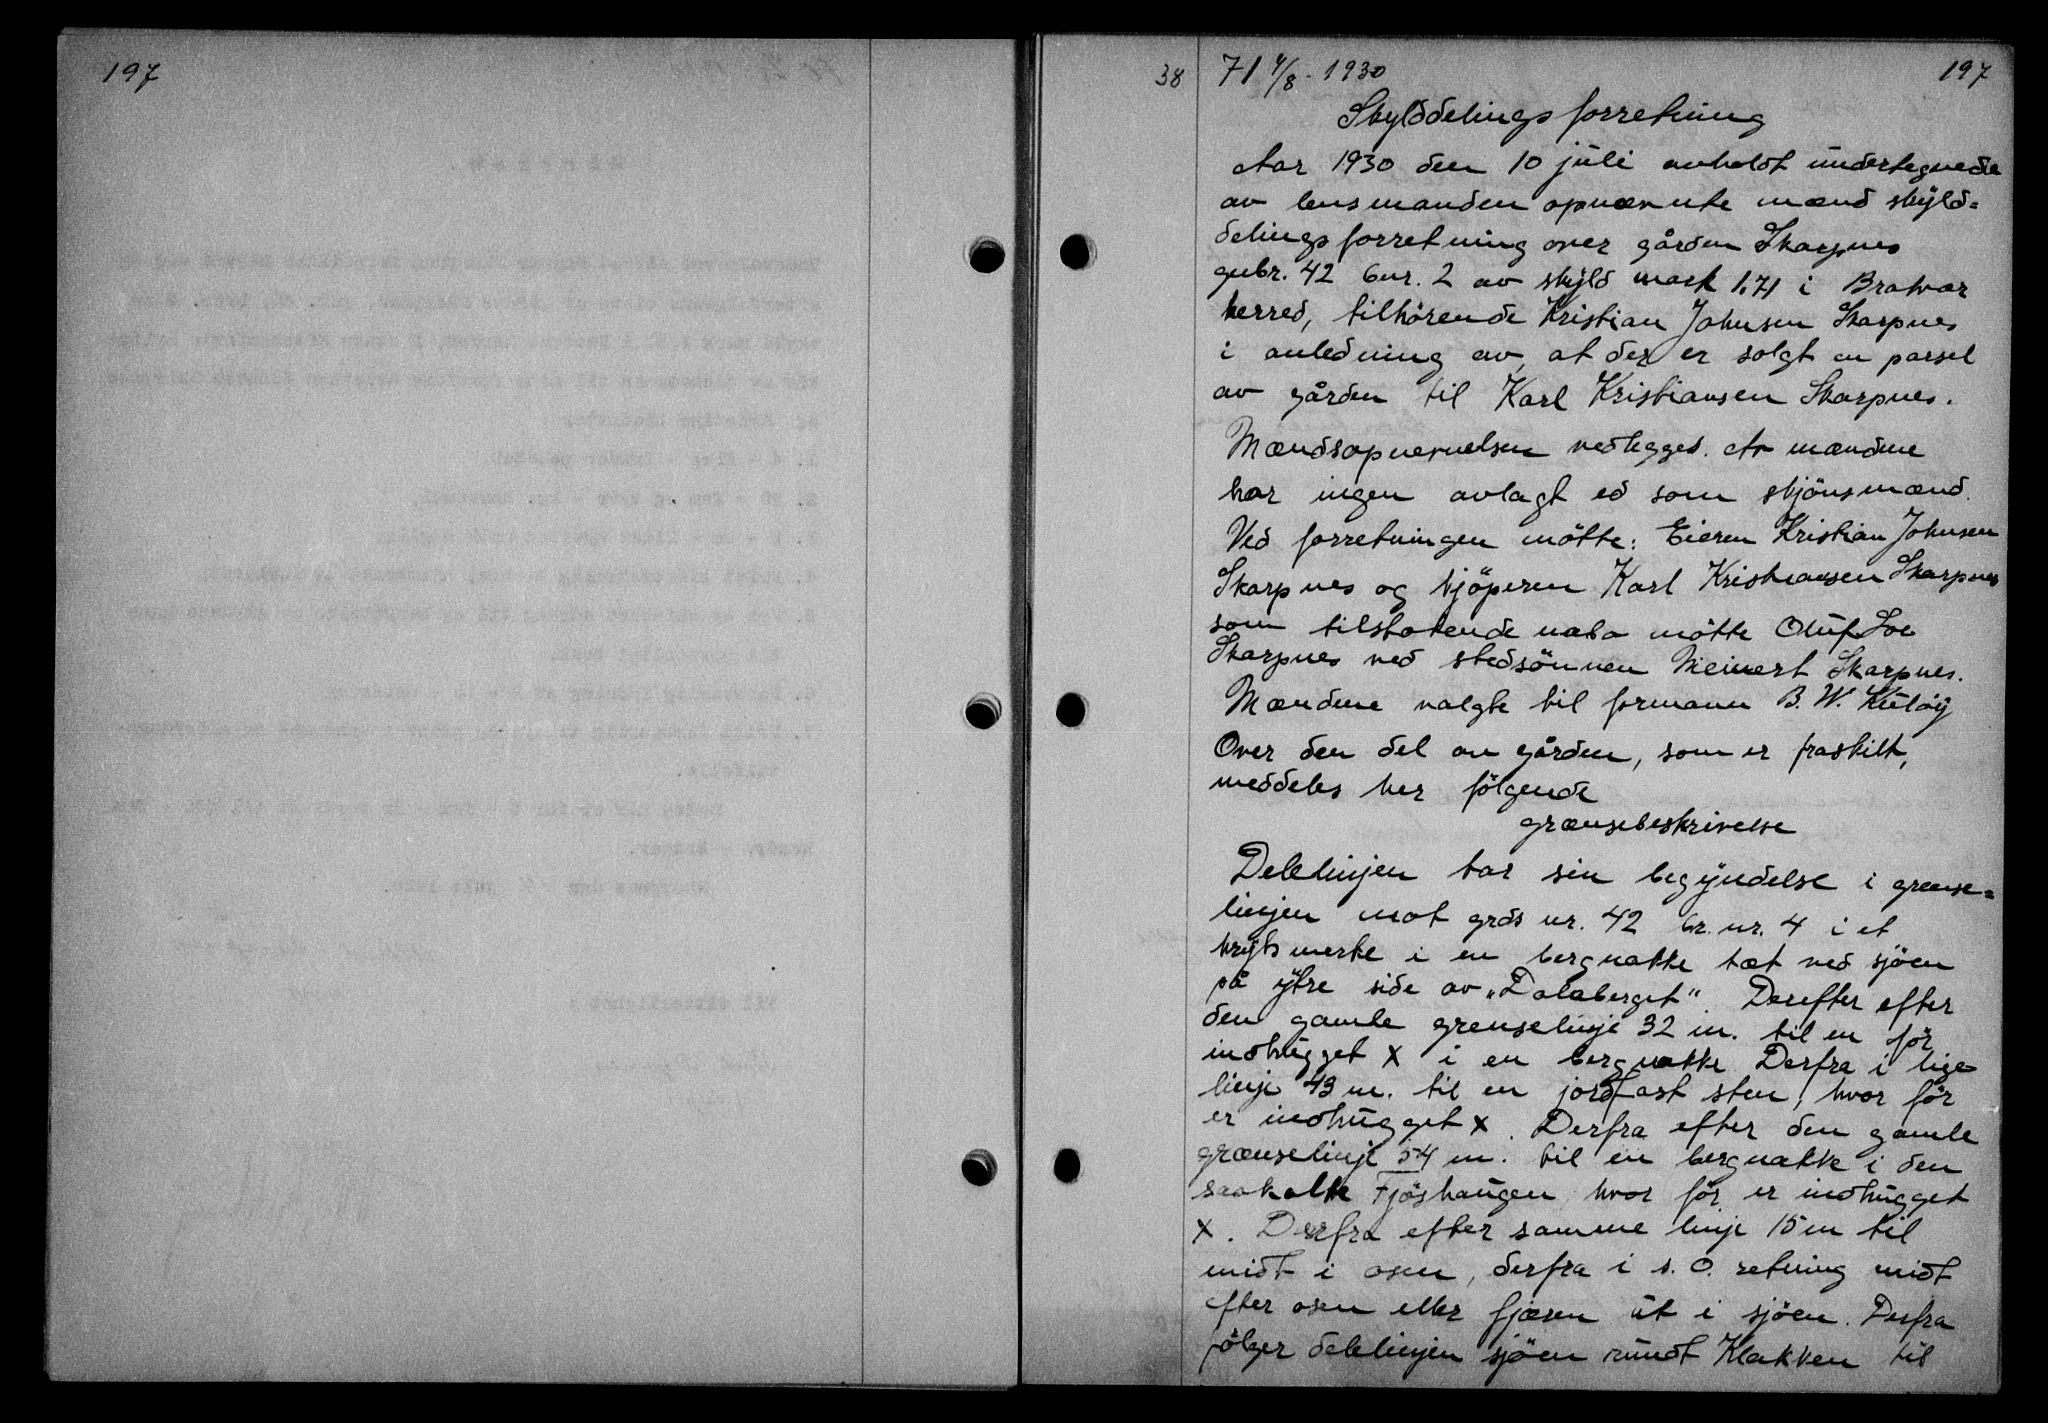 197
38 71 4/8 - 1930 197
Skylddelingsforretning
Aar 1930 den 10 juli avholdt undertegnede
av lensmanden opnævnte mænd skyld=
delingsforretning over gården Skarpnes
gnbr. 42 bnr. 2 av skyld mark 1.71 i Bratvær
herred, tilhörende Kristian Johnsen Skarpnes
i anledning av, at der er solgt en parsel
av gården til Karl Kristiansen Skarpnes.
Mændsopnevnelsen vedlegges. Av mændene
har ingen avlagt ed som skjönsmænd.
Ved forretningen mötte: Eieren Kristian Johnsen
Skarpnes og kjöperen Karl Kristiansen Skarpnes
som tilstøtende nabo mötte Oluf
Skarpnes ved stedsönnen Meinert Skarpnes.
Mændene valgte til formann B. W. Kulöy
Over den del av gården, som er fraskilt,
meddeles her fölgende
grænsebeskrivelse
Delelinjen tar sin begyndelse i grense=
linjen mot grds nr. 42 br. nr. 4 i et
krysmerke i en bergnakke tæt ved sjöen
på ytre side av "Dalaberget". Derefter efter
den gamle grenselinje 32 m. til en för
indhugget X i en bergnakke Derfra i lige
linje 43 m. til en jordfast sten, hvor för
er indhugget X. Derfra efter den gamle
grænselinje 54 m. til en bergnakke i den
saakalte Fjöshaugen, hvor för er indhugget
X. Derfra efter samme linje 15 m til
midt i osen, derfra i s. O. retning midt
efter osen eller fjæren ut i sjöen. Derfra
fölger delelinjen sjöen rundt Klakken til